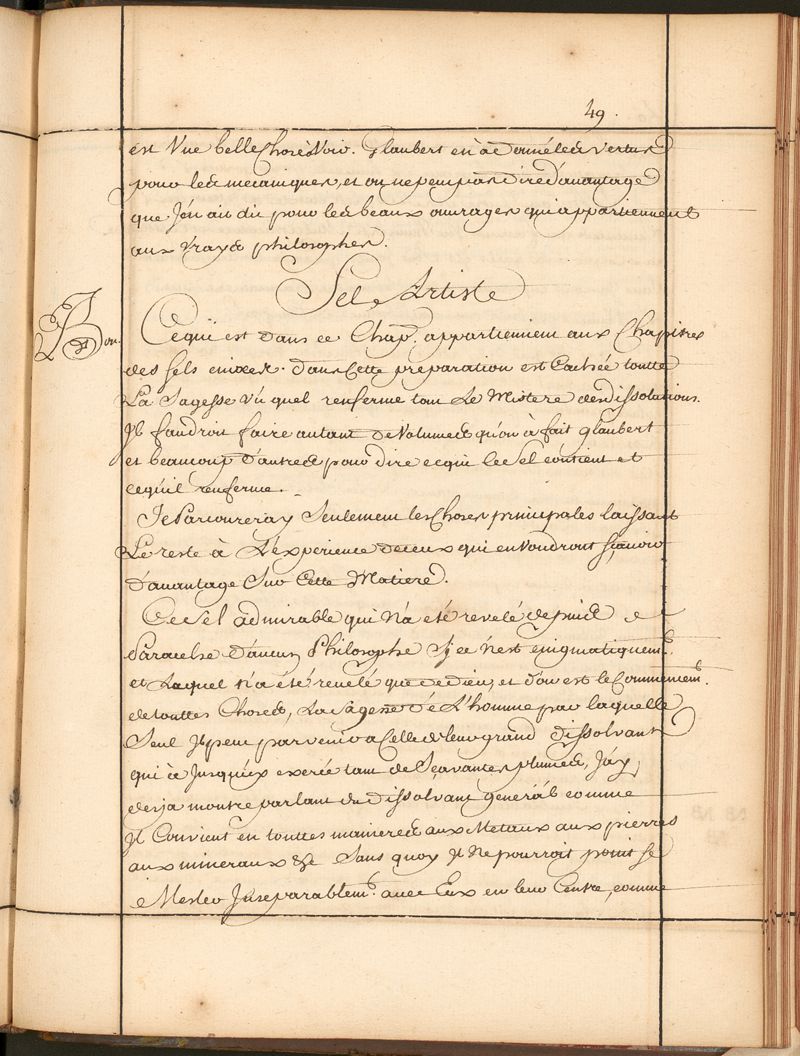 49.
est Vne belle Chose à Voir. Glaubert en à donné les vertus
pour les mecaniques, et on ne peu pas dire d'auantage
que J'en ait dit pour les beaux ouurages qui appartiennent
aux Vrays philosophes.
Sel Artiste
Bon.
Ce qui est dans ce Chap.e appartiennent aux Chapitres
des sels enixes. dans Cette preparation est Cachée toutte
La Sagesse Vû quel renferme tout Le Mistere des dissolutions.
Jl faudroit faire autant de Volumes qu'on à fait glaubert
et beaucoup d'autres pour dire ce qui le Sel contient et
ce qu'il renferme.
Je Parcoureray Seulement les Choses principales laissant
Le reste à L'experience de ceux qui en Voudront sçauoir
d'auantage Sur Cette Matiere.
Ce Sel admirable qui n'a eté reuelé depuis
Paracelse d'aucun Philosophe Sy ce n'est enigmatiquem.t
et Laquel n'a été reuelé que de dieu, et d'ou est le Commencem.t
de touttes Choses, La Sagesse dé L'homme par laquelle
Seul Jl peu paruenir a Celle de leur grand dissolvant
qui à Jusqu'ix exercé tant de Sçavantes plumes, J'ay
desja montre parlant du dissolvant general comme
Jl Conuient en touttes manieres aux Metaux aux pierres
aux mineraux &c Sans quoy Jl Ne pourroit point se
Mesler Jnseparablem.t auec Eux en leur Centre, comme